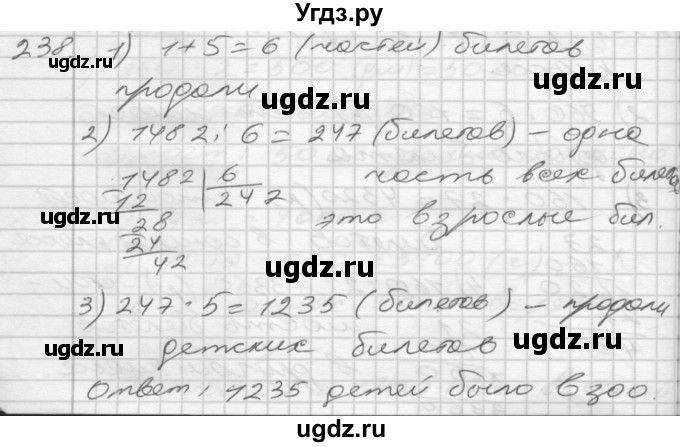 Угдз.ру
238 1) 1+5=6 (частей) билетов
продали
2) 1482:6=247 (билетов) – одна
1482 | 6 часть всех билетов
12 247
28 это взрослые бил.
24
42
3) 247·5=1235 (билетов) – продали
детских билетов
Ответ: 1235 детей было в зоо.
ugdz.ru
ugdz.ru
ugdz.ru
ugdz.ru
ugdz.ru
ugdz.ru
ugdz.ru
ugdz.ru
ugdz.ru
ugdz.ru
ugdz.ru